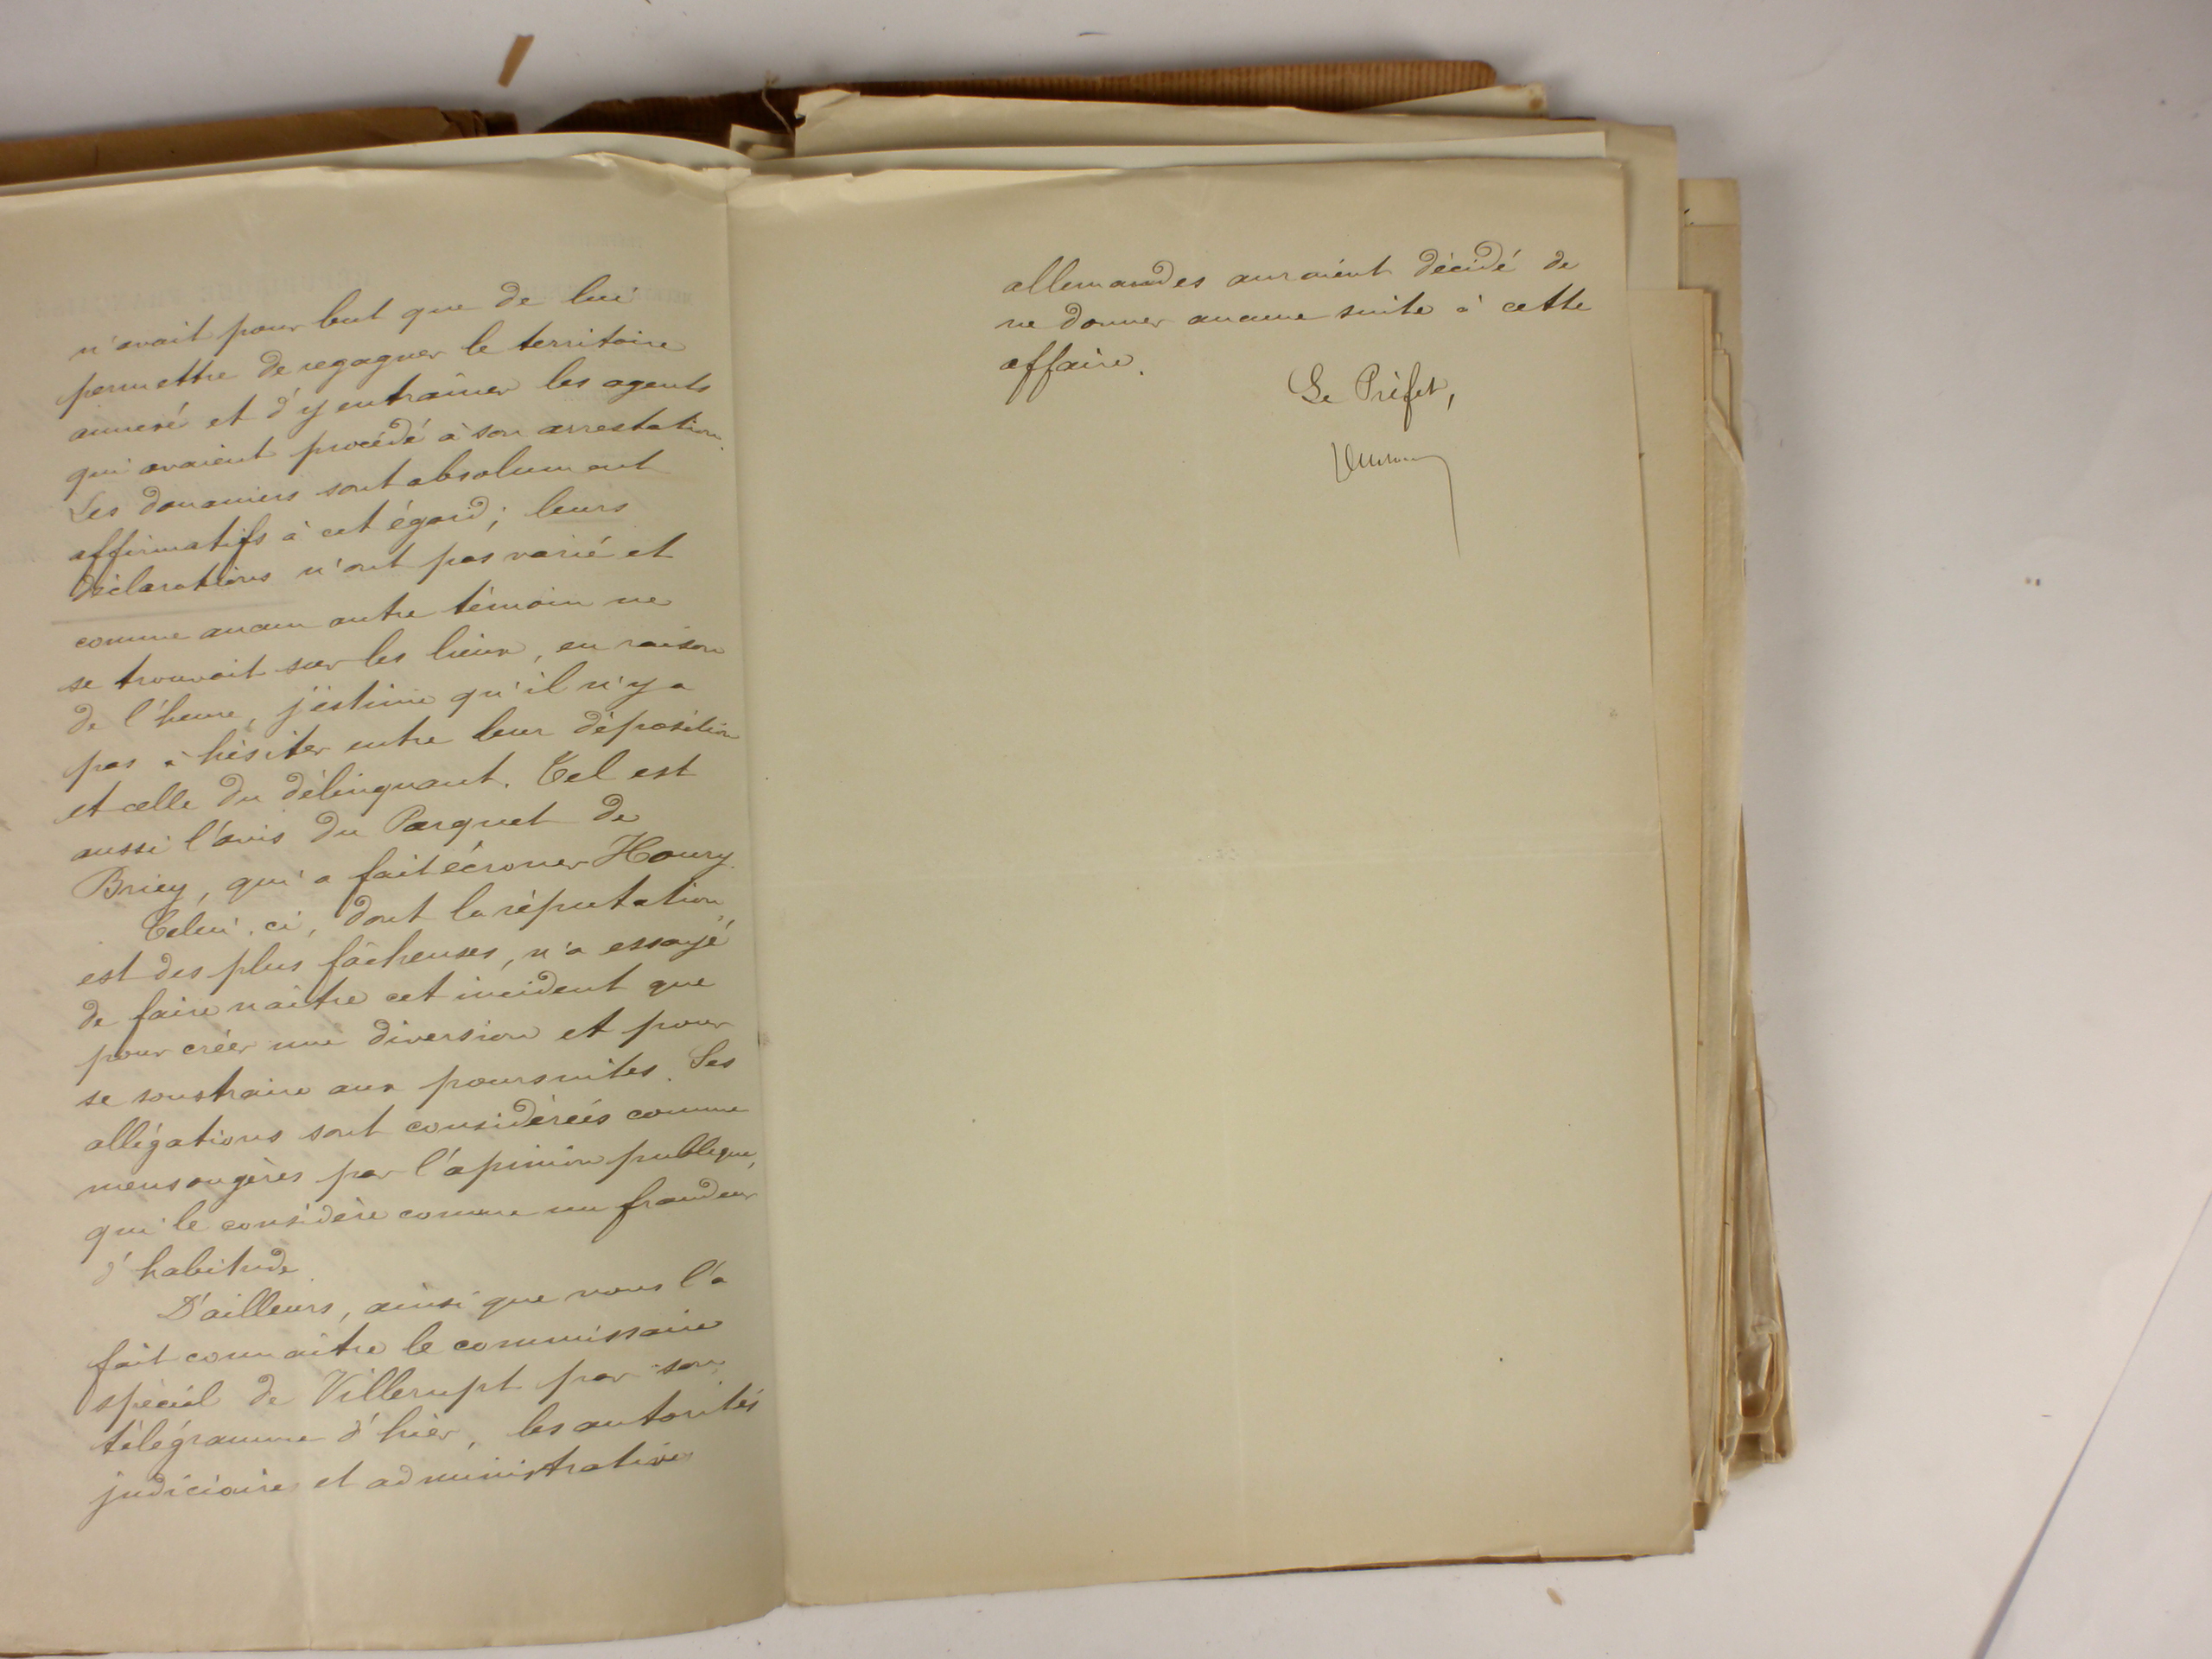 n'avait pour but que de lui
permettre de regagner le territoire
annexé et d'y entraîner les agents
qui avaient procédé à son arrestation.
Les douaniers sont absolument
affirmatifs à cet égard ; leurs
déclarations n'ont pas varié et
comme aucun autre témoin ne
se trouvait sur les lieux, en raison
de l'heure, j'estime qu'il n'y a
pas à hésiter entre leur déposition
et celle du délinquant. Tel est
aussi l'avis du Parquet de
Briey, qui a fait écrouer Houry.
Celui-ci, dont la réputation
est des plus fâcheuses, n'a essayé
de faire naître cet incident que
pour créer une diversion et pour
se soustraire aux poursuites. Ses
allégations sont considérées comme
mensongères par l'opinion publique,
qui le considère comme un fraudeur
d'habitude.
D'ailleurs, ainsi que vous l'a
fait connaître le commissaire
spécial de Villerupt par son
télégramme d'hier, les autorités
judiciaires et administratives
allemandes auraient décidé de
ne donner aucune suite à cette
affaire.
Le Préfet,